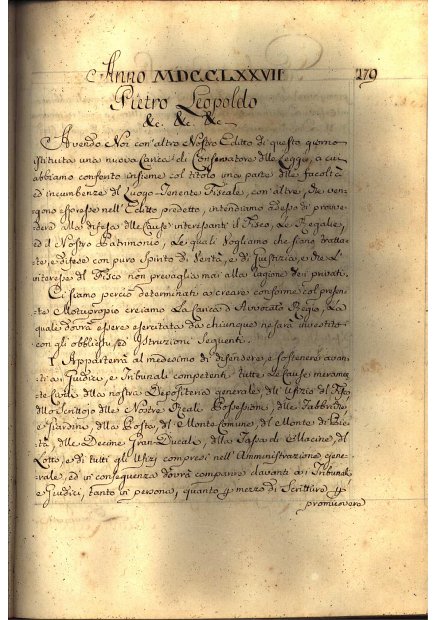 Anno MDCCLXXVII 179
Pietro Leopoldo
&c. &c. &c
Avendo Noi con' altro Nostro Editto di questo giorno
istituita una nuova Carica di Conservatore delle Leggi, a cui
abbiamo conferito insieme col titolo una parte delle facoltà
ed incumbenze di Luogo-Tenente Fiscale, con' altre, che ven-
gono espresse nell' Editto predetto, intendiamo adesso di provve-
dere alla difesa delle Cause interessanti il Fisco, Le Regalie,
ed il Nostro Patrimonio, Le quali Vogliamo che siano tratta-
te, e difese con puro Spirito di Verità, e di Justizia, e che L'
interesse del Fisco non prevaglia mai alla ragione dei privati.
Ci siamo perciò determinati a creare conforme col presen-
te Motuproprio creiamo La Carica d' Avvocato Regio, La
quale dovrà essere esercitata da chiunque ne sarà investito
con gli obblighi, ed Istruzioni Seguenti.
I. Apparterrà al medesimo di difendere, e sostenere avan-
ti a' Giudici, e Tribunali competenti tutte Le Cause meramen-
te Civili della nostra Depositeria generale, dell' Ufizio del Fisco
dello Scrittojo delle Nostre Reali Possessioni, delle Fabbriche
e Giardini, della Posta, del Monte Comune, del Monte di Pie-
tà, delle Decime Gran-Ducali, della Tassa di Macine, del
Lotto, e di tutti gli Ufizi compresi nell' Amministrazione gene-
rale, ed in conseguenza dovrà comparire davanti a i Tribunali
e Giudici, tanto in persona, quanto p mezzo di Scritture p
promuovere